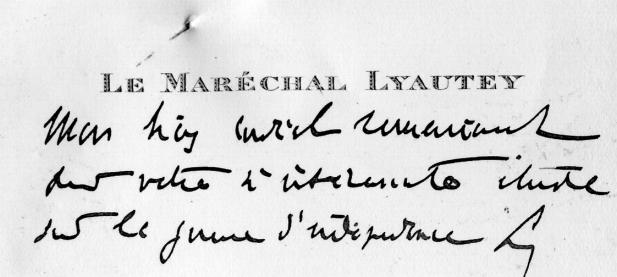 LE MARÉCHAL LYAUTEY
Mon très cordial remerciement
pour votre intéressante étude
sur la guerre d'indépendance L